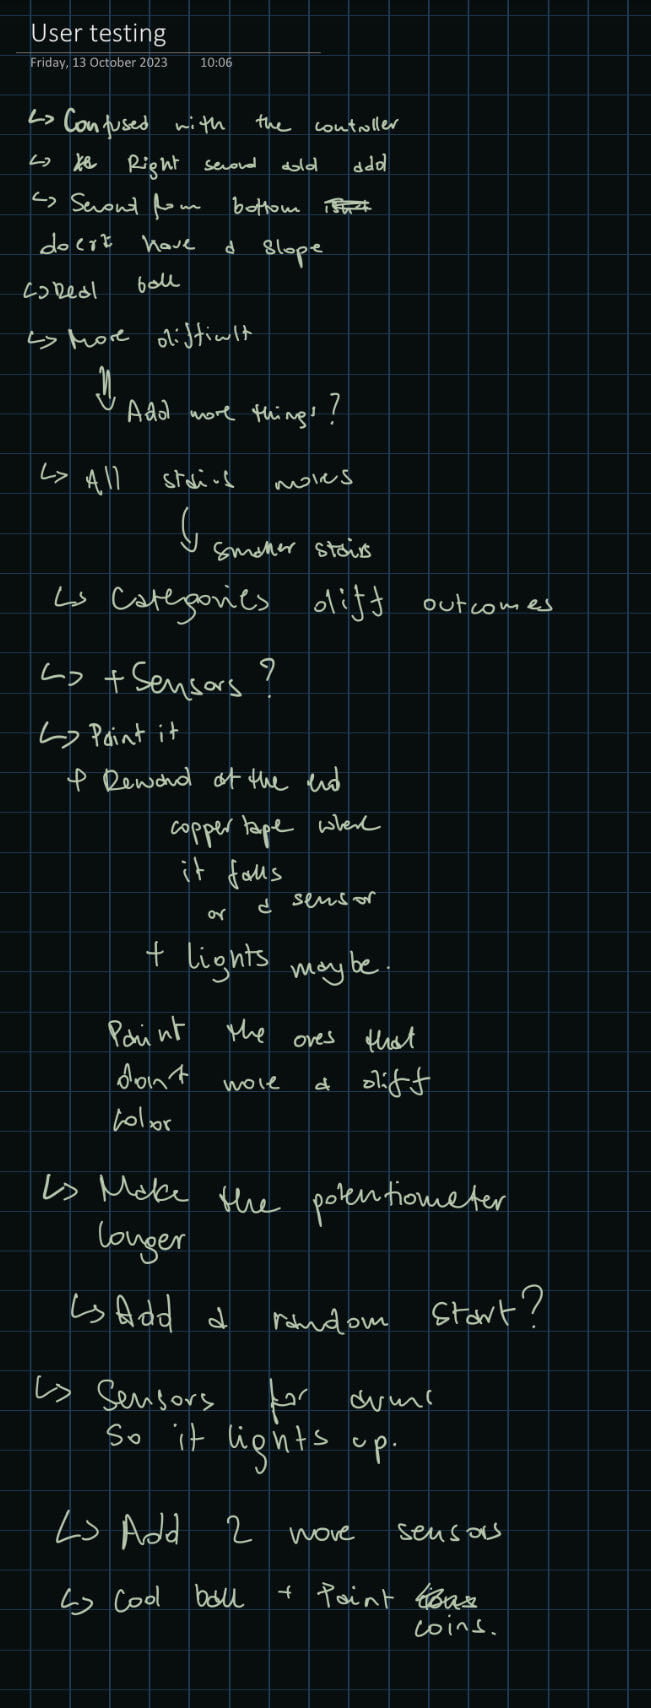 User testing
Friday, 13 October 2023 10:06
↳ Confused with the controller
↳ Right second add
↳ Second from bottom
doesn't have a slope
↳ Real ball
↳ More difficult
Add more things?
↳ All stairs moves
smaller stairs
↳ Categories diff outcomes
↳ + Sensors?
↳ Paint it
+ Reward at the end
copper tape when
it falls
or a sensor
+ lights maybe.
Paint the ones that
don't move a diff
color
↳ Make the potentiometer
longer
↳ Add a random start?
↳ Sensors for
So it lights up.
↳ Add 2 more sensors
↳ Cool ball + Paint
coins.